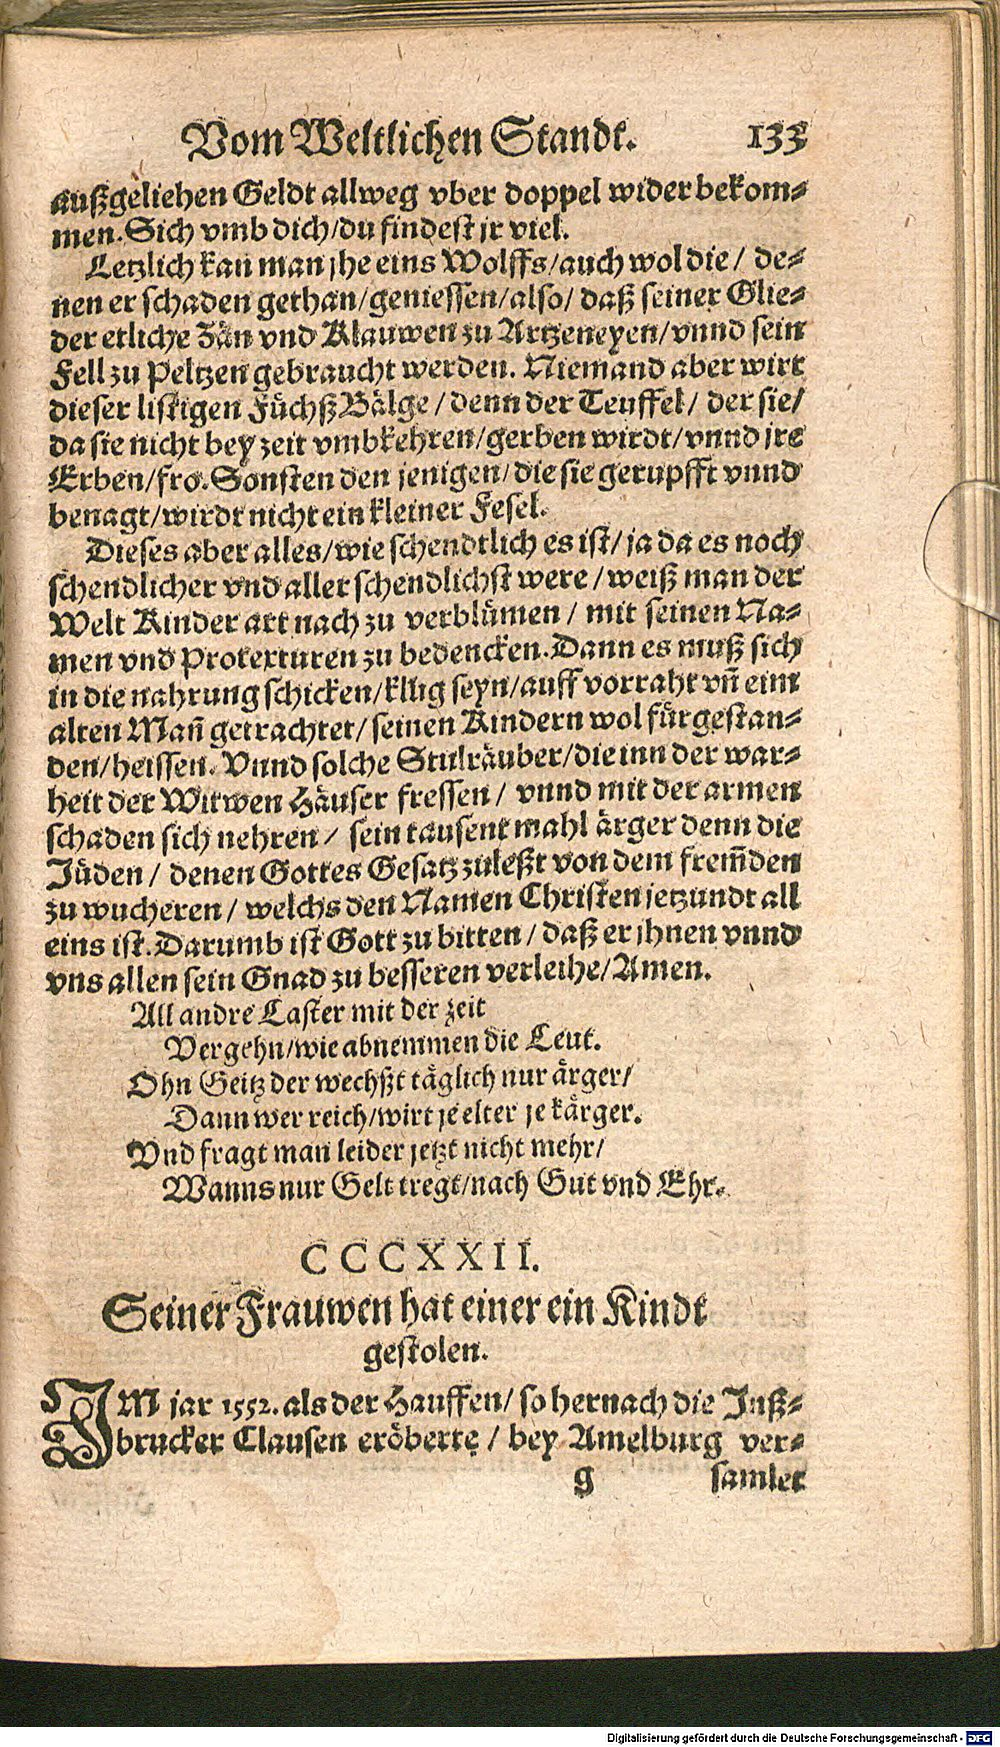 Vom Weltlichen Standt. 133
außgeliehen Geldt allweg vber doppel wider bekom⸗
men. Sich vmb dich/du findest jr viel.
Letzlich kan man jhe eins Wolffs/auch wol die/ de⸗
nen er schaden gethan/geniessen/also/ daß seiner Glie⸗
der etliche Zän vnd Klauwen zu Artzeneyen/vnnd sein
Fell zu Peltzen gebraucht werden. Niemand aber wirt
dieser listigen Füchß Bälge/denn der Teuffel/ der sie/
da sie nicht bey zeit vmbkehren/gerben wirdt/vnnd jre
Erben/fro. Sonsten den jenigen/die sie gerupfft vnnd
benagt/wirdt nicht ein kleiner Fesel.
Dieses aber alles/wie schendtlich es ist/ja da es noch
schendlicher vnd aller schendlichst were/weiß man der
Welt Kinder art nach zu verblümen/ mit seinen Na⸗
men vnd Protexturen zu bedencken. Dann es muß sich
in die nahrung schicken/kllig seyn/auff vorraht vn̄ eim
alten Man̄ getrachtet/seinen Kindern wol fürgestan⸗
den/heissen. Vnnd solche Stulräuber/die inn der war⸗
heit der Witwen Häuser fressen/ vnnd mit der armen
schaden sich nehren/ sein tausent mahl ärger denn die
Jüden/ denen Gottes Gesatz zuleßt von dem frem̄den
zu wucheren/ welchs den Namen Christen jetzundt all
eins ist. Darumb ist Gott zu bitten/daß er jhnen vnnd
vns allen sein Gnad zu besseren verleihe/Amen.
All andre Laster mit der zeit
Vergehn/wie abnemmen die Leut.
Ohn Geitz der wechßt täglich nur ärger/
Dann wer reich/wirt je elter je kärger.
Vnd fragt man leider jetzt nicht mehr/
Wanns nur Gelt tregt/nach Gut vnd Ehr.
CCCXXII.
Seiner Frauwen hat einer ein Kindt
gestolen.
IM jar 1552. als der Hauffen/so hernach die Inß⸗
brucker Clausen eröberte/ bey Amelburg ver⸗
g samlet
Digitalisierung gefördert durch die Deutsche Forschungsgemeinschaft - DFG